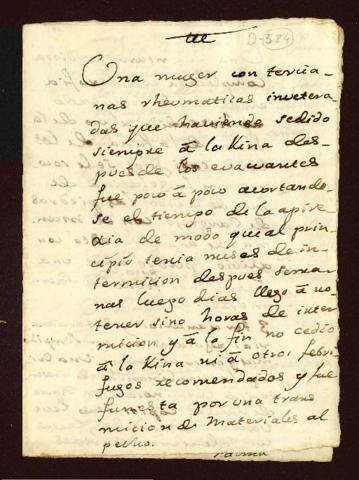 D-384
Una muger con tercia-
nas rheumaticas invetera-
das que haviendo sedido
siempre â la Kina des-
pues de los evacuantes
fue poco â poco acortando-
se el tiempo de la apire-
xia de modo que al prin-
cipio tenia meses de in-
termicion despues sema-
nas luego dias llego â no
tener sino horas de inter
micion y â la fin no cedio
â la Kina ni â otros febri
fugos recomendados y fue
funesta por una trans
micion de Materiales al
pecho.